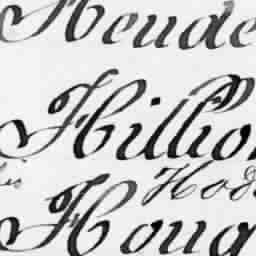 Hende
Hillion
his
Hod
Houg